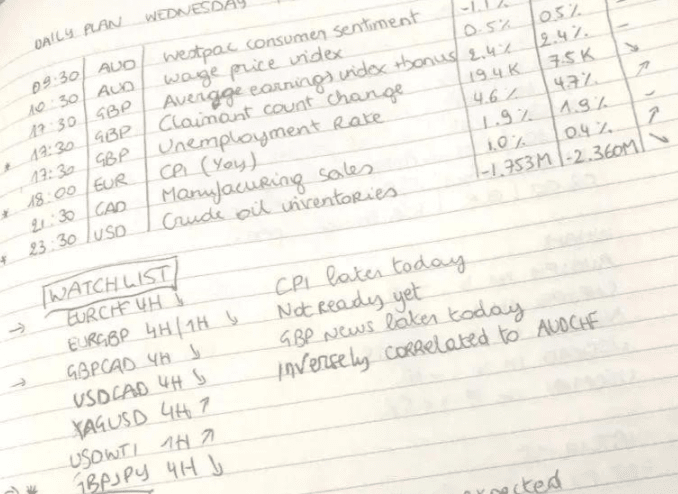 DAILY PLAN WEDNESDAY
09:30 AUD Westpac consumer sentiment -1.1%
10:30 AUD wage price index 0.5% 0.5%
17:30 GBP Average earnings index +bonus 2.4% 2.4% -
* 17:30 GBP Claimant count change 19.4K 7.5K ↘
17:30 GBP Unemployment Rate 4.6% 4.7% ↗
* 18:00 EUR CPI (YoY) 1.9% 1.9% -
21:30 CAD Manufacuring sales 1.0% 0.4% ↗
* 23:30 USD Crude oil inventories -1.753M -2.360M ↘
WATCHLIST
→ EURCHF 4H ↘ CPI later today
EURGBP 4H/1H ↘ Not Ready yet
→ GBPCAD 4H ↘ GBP News later today
USDCAD 4H ↘ Inversely correlated to AUDCHF
XAGUSD 4H ↗
USOWTI 1H ↗
* GBPJPY 4H ↘